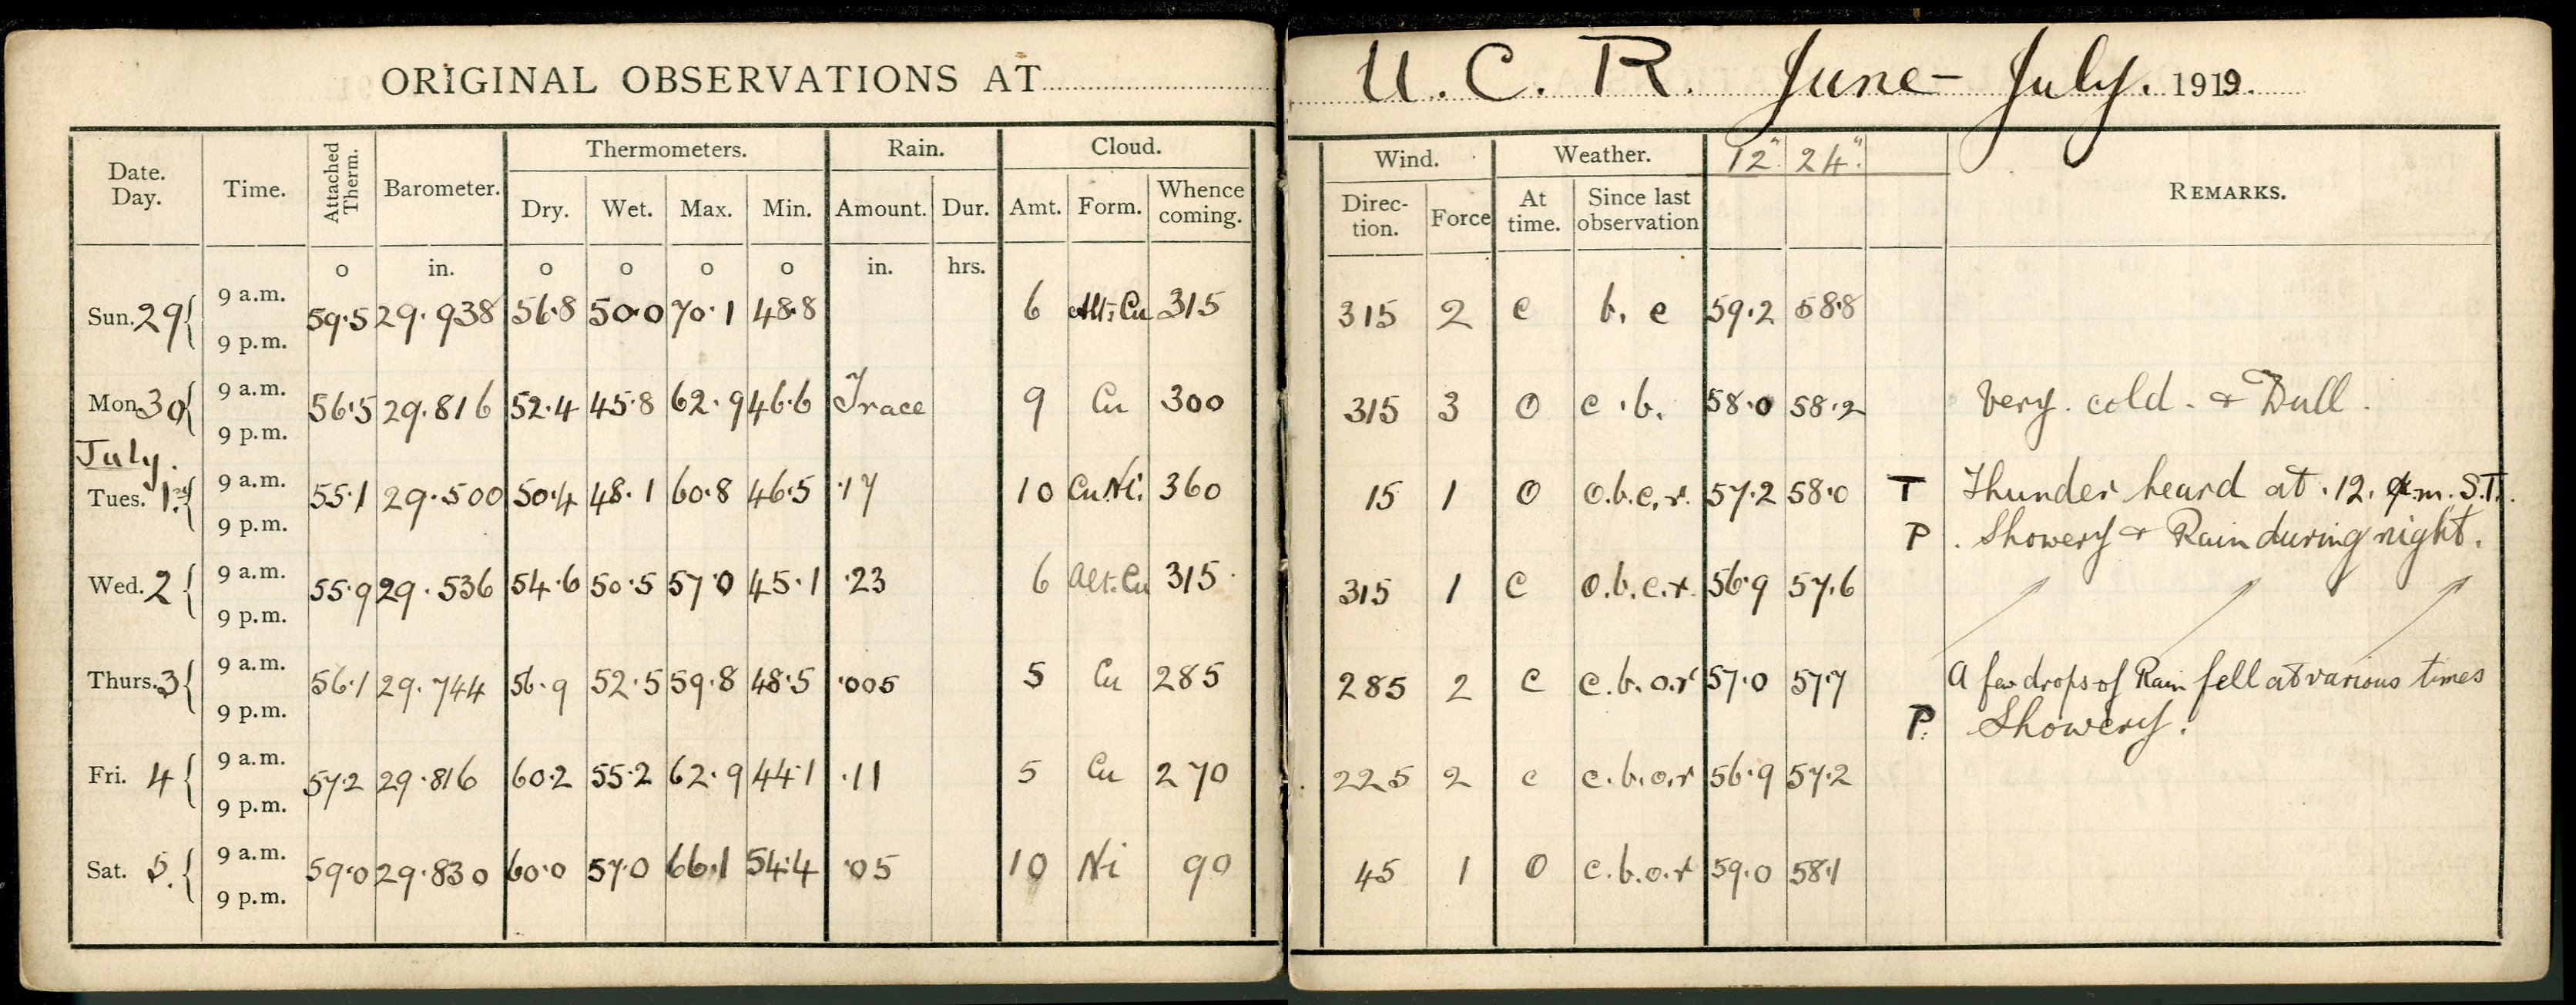 ORIGINAL OBSERVATIONS AT U. C. R. June - July. 1919.
Date. Day. Time. Attached Therm. Barometer. Thermometers. Rain. Cloud. Wind. Weather. 12". 24". REMARKS.
Dry. Wet. Max. Min. Amount. Dur. Amt. Form. Whence coming. Direction. Force At time. Since last observation
o in. o o o o in. hrs.
Sun. 29 { 9 a.m. 59.5 29.938 56.8 50.0 70.1 48.8 6 Alt:Cu 315 315 2 c b. c 59.2 58.8
9 p.m.
Mon 30 { 9 a.m. 56.5 29.816 52.4 45.8 62.9 46.6 Trace 9 Cu 300 315 3 O c.b. 58.0 58.2 Very. cold. & Dull.
9 p.m.
July.
Tues. 1st { 9 a.m. 55.1 29.500 50.4 48.1 60.8 46.5 .17 10 Cu.Ni. 360 15 1 O o.b.c.r. 57.2 58.0 T Thunder heard at .12. .m. S.T.
9 p.m. P. Showery & Rain during night.
Wed. 2 { 9 a.m. 55.9 29.536 54.6 50.5 57.0 45.1 .23 6 Alt.Cu 315 315 1 C o.b.c.r. 56.9 57.6
9 p.m.
Thurs. 3 { 9 a.m. 56.1 29.744 56.9 52.5 59.8 48.5 .005 5 Cu 285 285 2 C c.b.o.r 57.0 57.7 A few drops of Rain fell at various times
9 p.m. P. Showery.
Fri. 4 { 9 a.m. 57.2 29.816 60.2 55.2 62.9 44.1 .11 5 Cu 270 225 2 c c.b.o.r 56.9 57.2
9 p.m.
Sat. 5. { 9 a.m. 59.0 29.830 60.0 57.0 66.1 54.4 .05 10 Ni 90 45 1 O c.b.o.r 59.0 58.1
9 p.m.